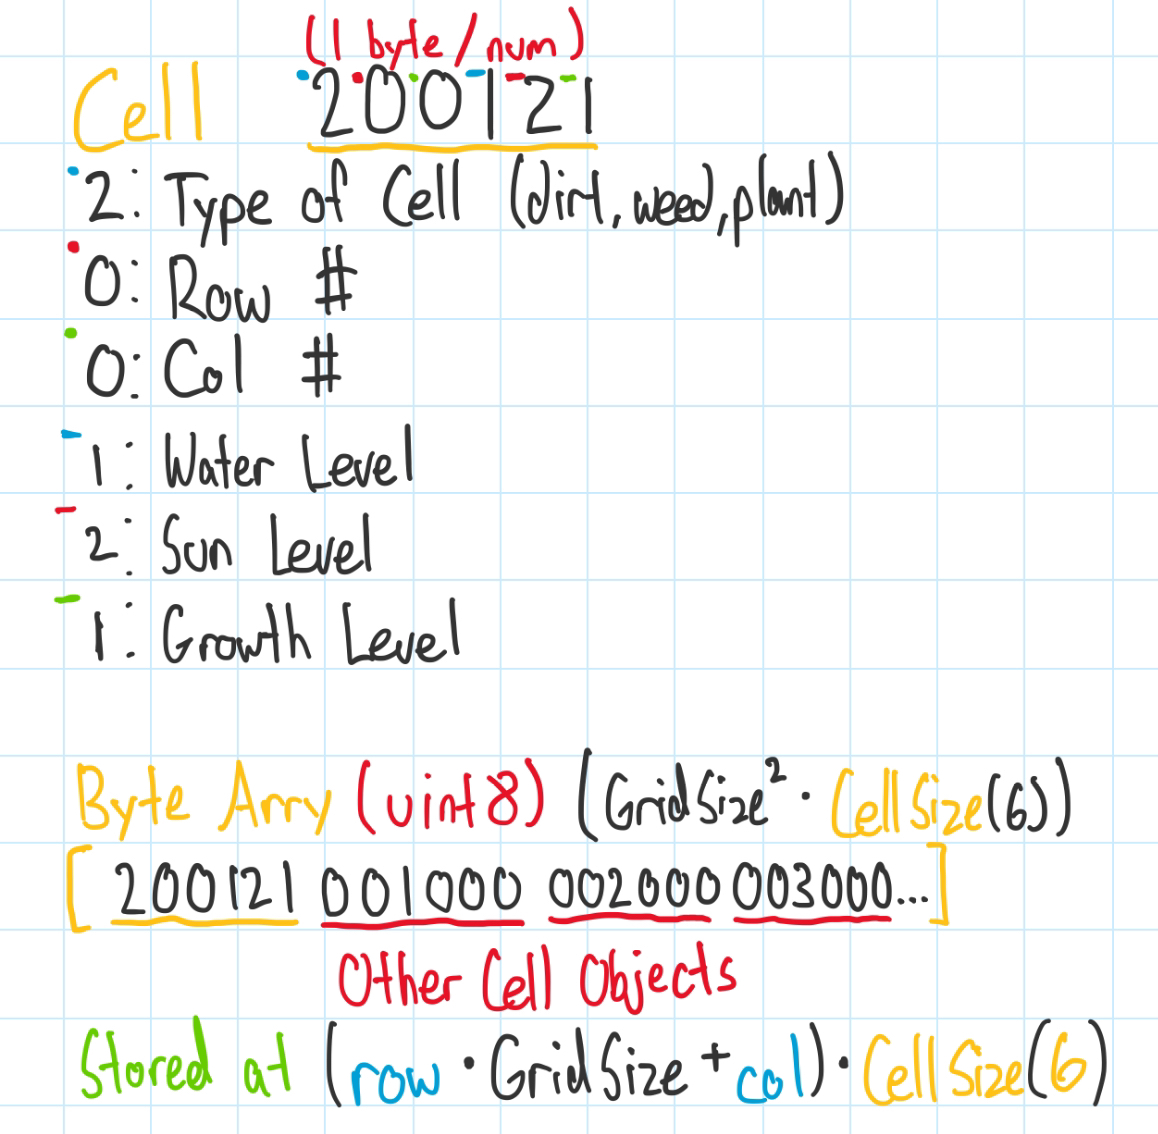 (1 byte/num)
Cell 200121
2: Type of Cell (dirt, weed, plant)
0: Row #
0: Col #
1: Water Level
2: Sun Level
1: Growth Level
Byte Arry (uint8) (GridSize² · CellSize(6))
[200121 001000 002000 003000...]
Other Cell Objects
Stored at (row · GridSize + col) · CellSize(6)